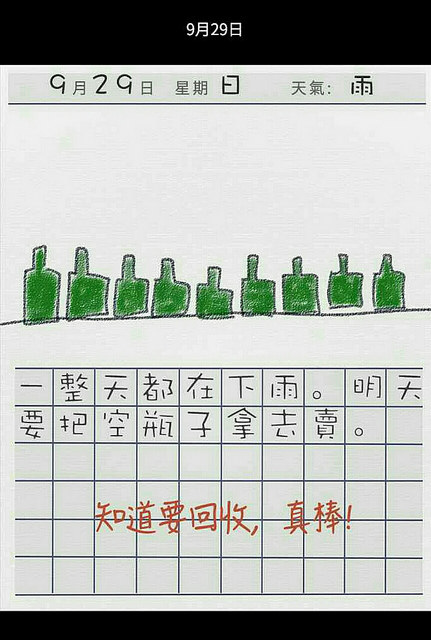 9月29日
9月29日 星期日 天氣: 雨
一整天都在下雨。明天
要把空瓶子拿去賣。
知道要回收,真棒!